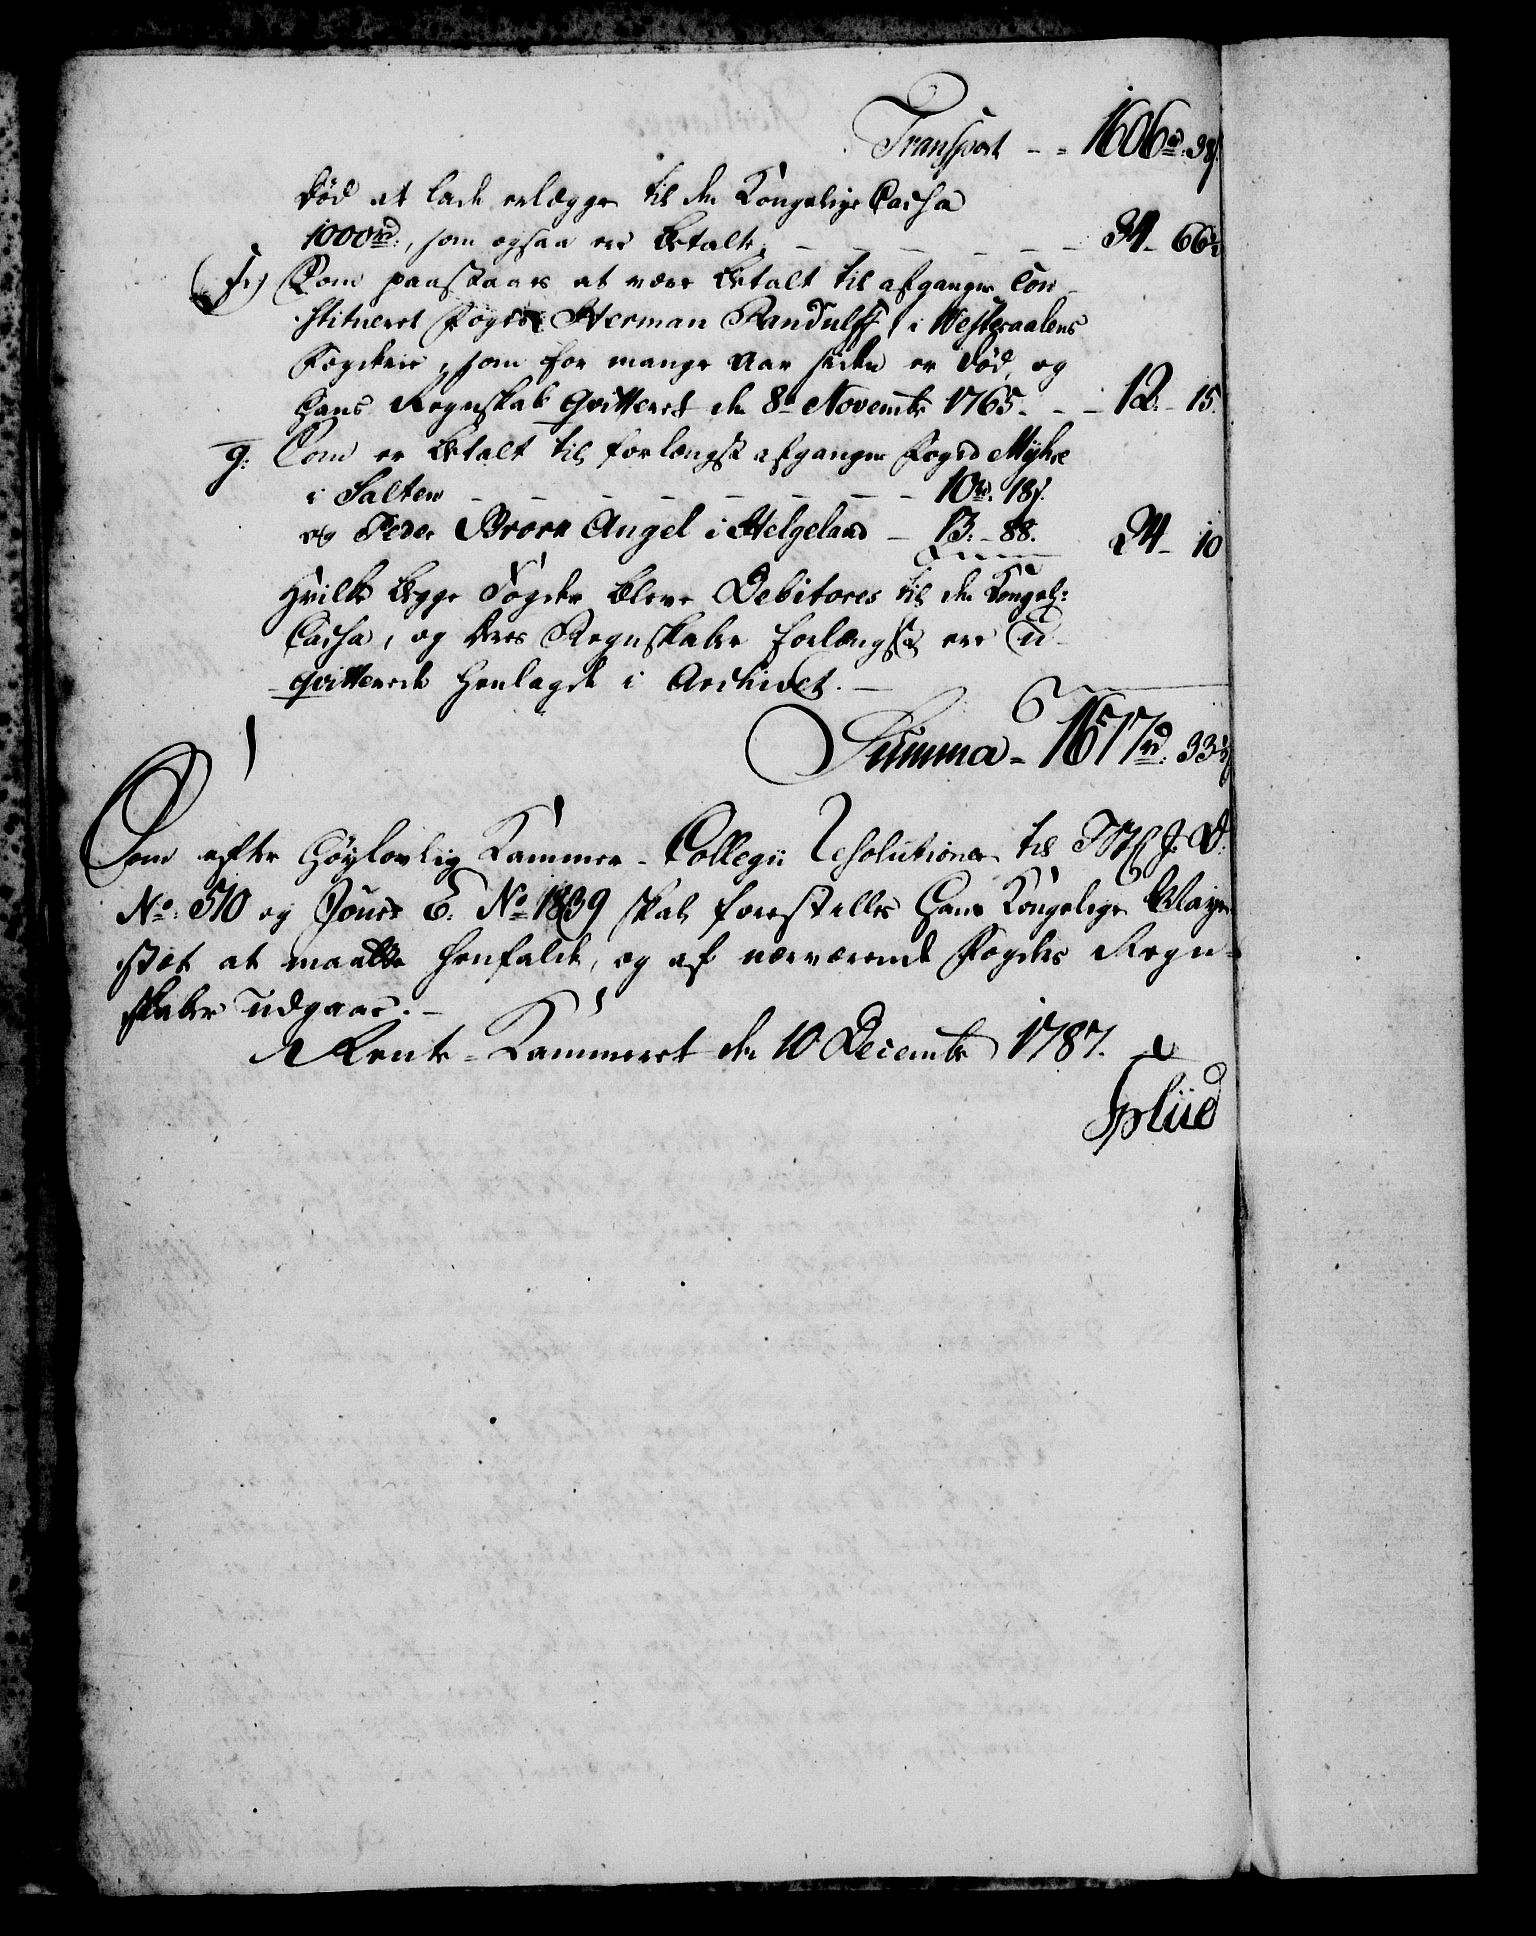 Transport - - 1606rd. 38s.
død at lade erlægge til den Kongelige Cassa
1000rd:, som ogsaa ere betalte. - - - - - - 34 - 66½
f.) Som paastaaes at være betalt til afgangne Con-
stitueret Foged Herman Randulff i Westeraalens
Fogderie, som for mange Aar siden er død, og
hans Regnskab qvitteret den 8de Novembr 1765. - - - 12. - 15.
g: Som er betalt til forlængst afgangne Foged Myhre
i Salten - - - - - - - - 10rd. 18s.
og Peder Broch Angel i Helgeland - 13. - 88. 24 - 10
hvilke begge Fogder bleve Debitores til den Kongel:
Cassa, og deres Regnskaber forlængst ere u-
qvitterede henlagde i Archivet. -
Summa - 1677rd. 33½s
Som efter Høylovlig Kammer-Collegii Resolutioner til J. D:
No: 510 og Jour: E. No 1839 skal forestilles Hans Kongelige Maye-
stæt at maatte henfalde, og af nærværende Fogdes Regn-
skaber udgaae. -
Rente-Kammeret den 10 Decembr 1787.